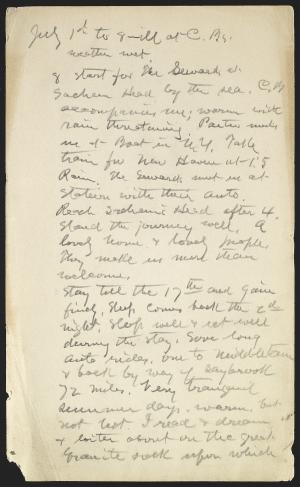 July 1st to 8 - ill at C. By.
weather wet
8 start for the Sewards at
Sachem Head by the sea. C. B.
accompanies me; warm with
rain threatening. Parties meets
me at Boat in N.Y. Take
train for New Haven at 1:5
Rain. The Sewards meet us at
station with their auto.
Reach Sachem's Head after 4.
Stand the journey well. A
lovely home & lovely people.
They make us more than
welcome.
Stay till the 17th and gain
finely. Sleep comes back the 2nd
night. Sleep well & eat well
during the stay. Some long
auto rides. One to Middletown
& back by way of Saybrook
72 miles. Very tranquil
summer days. warm, but
not hot. I read & dream
& loiter about on the great
granite rock upon which